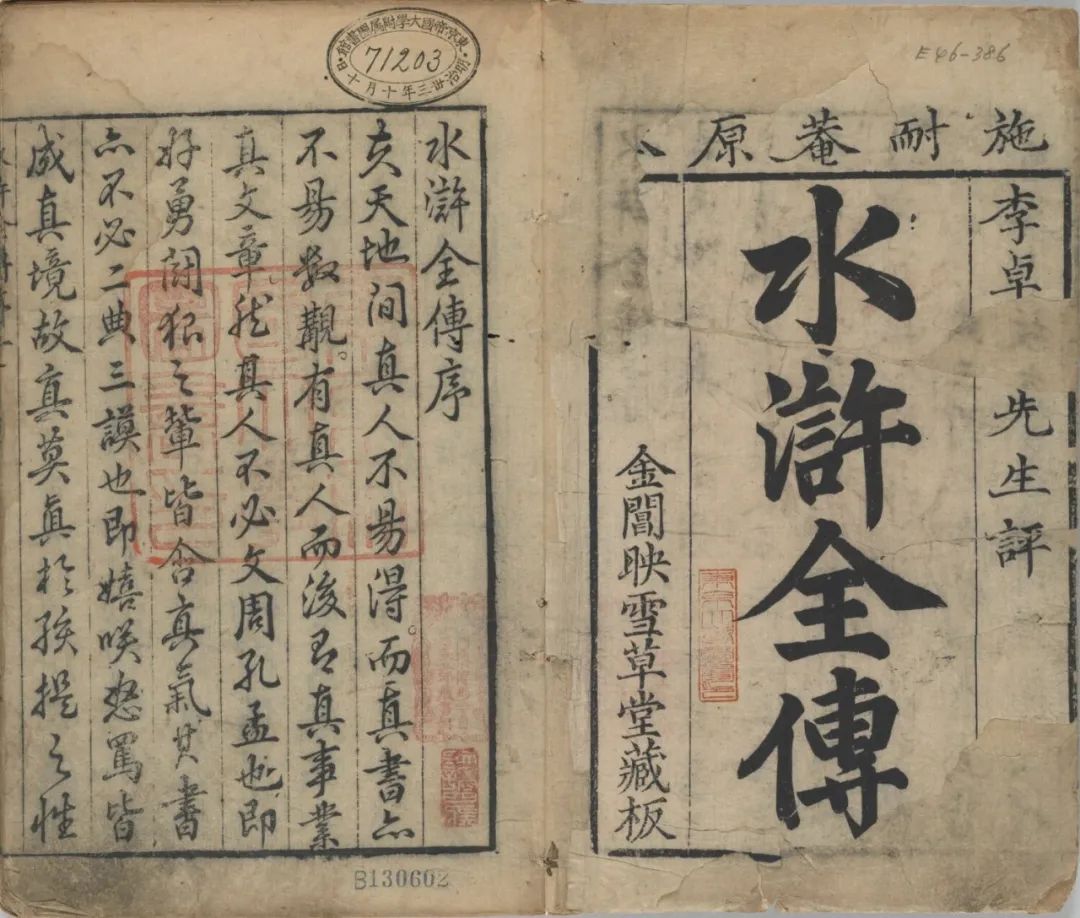 E46-386
施耐菴原
李卓 先生評
水滸全傳
金閶映雪草堂藏板
東京帝國大學附属圖書館
71203
明治卅三年十月十日
水滸全傳序
夫天地間真人不易得。而真書亦
不易數觀。有真人而後有真事業
真文章。然其人不必文周孔孟也即
好勇鬪狠之輩皆含真氣其書
亦不必二典三謨也即嬉咲怒罵皆
成真境故真莫真於孩提之性
B130602